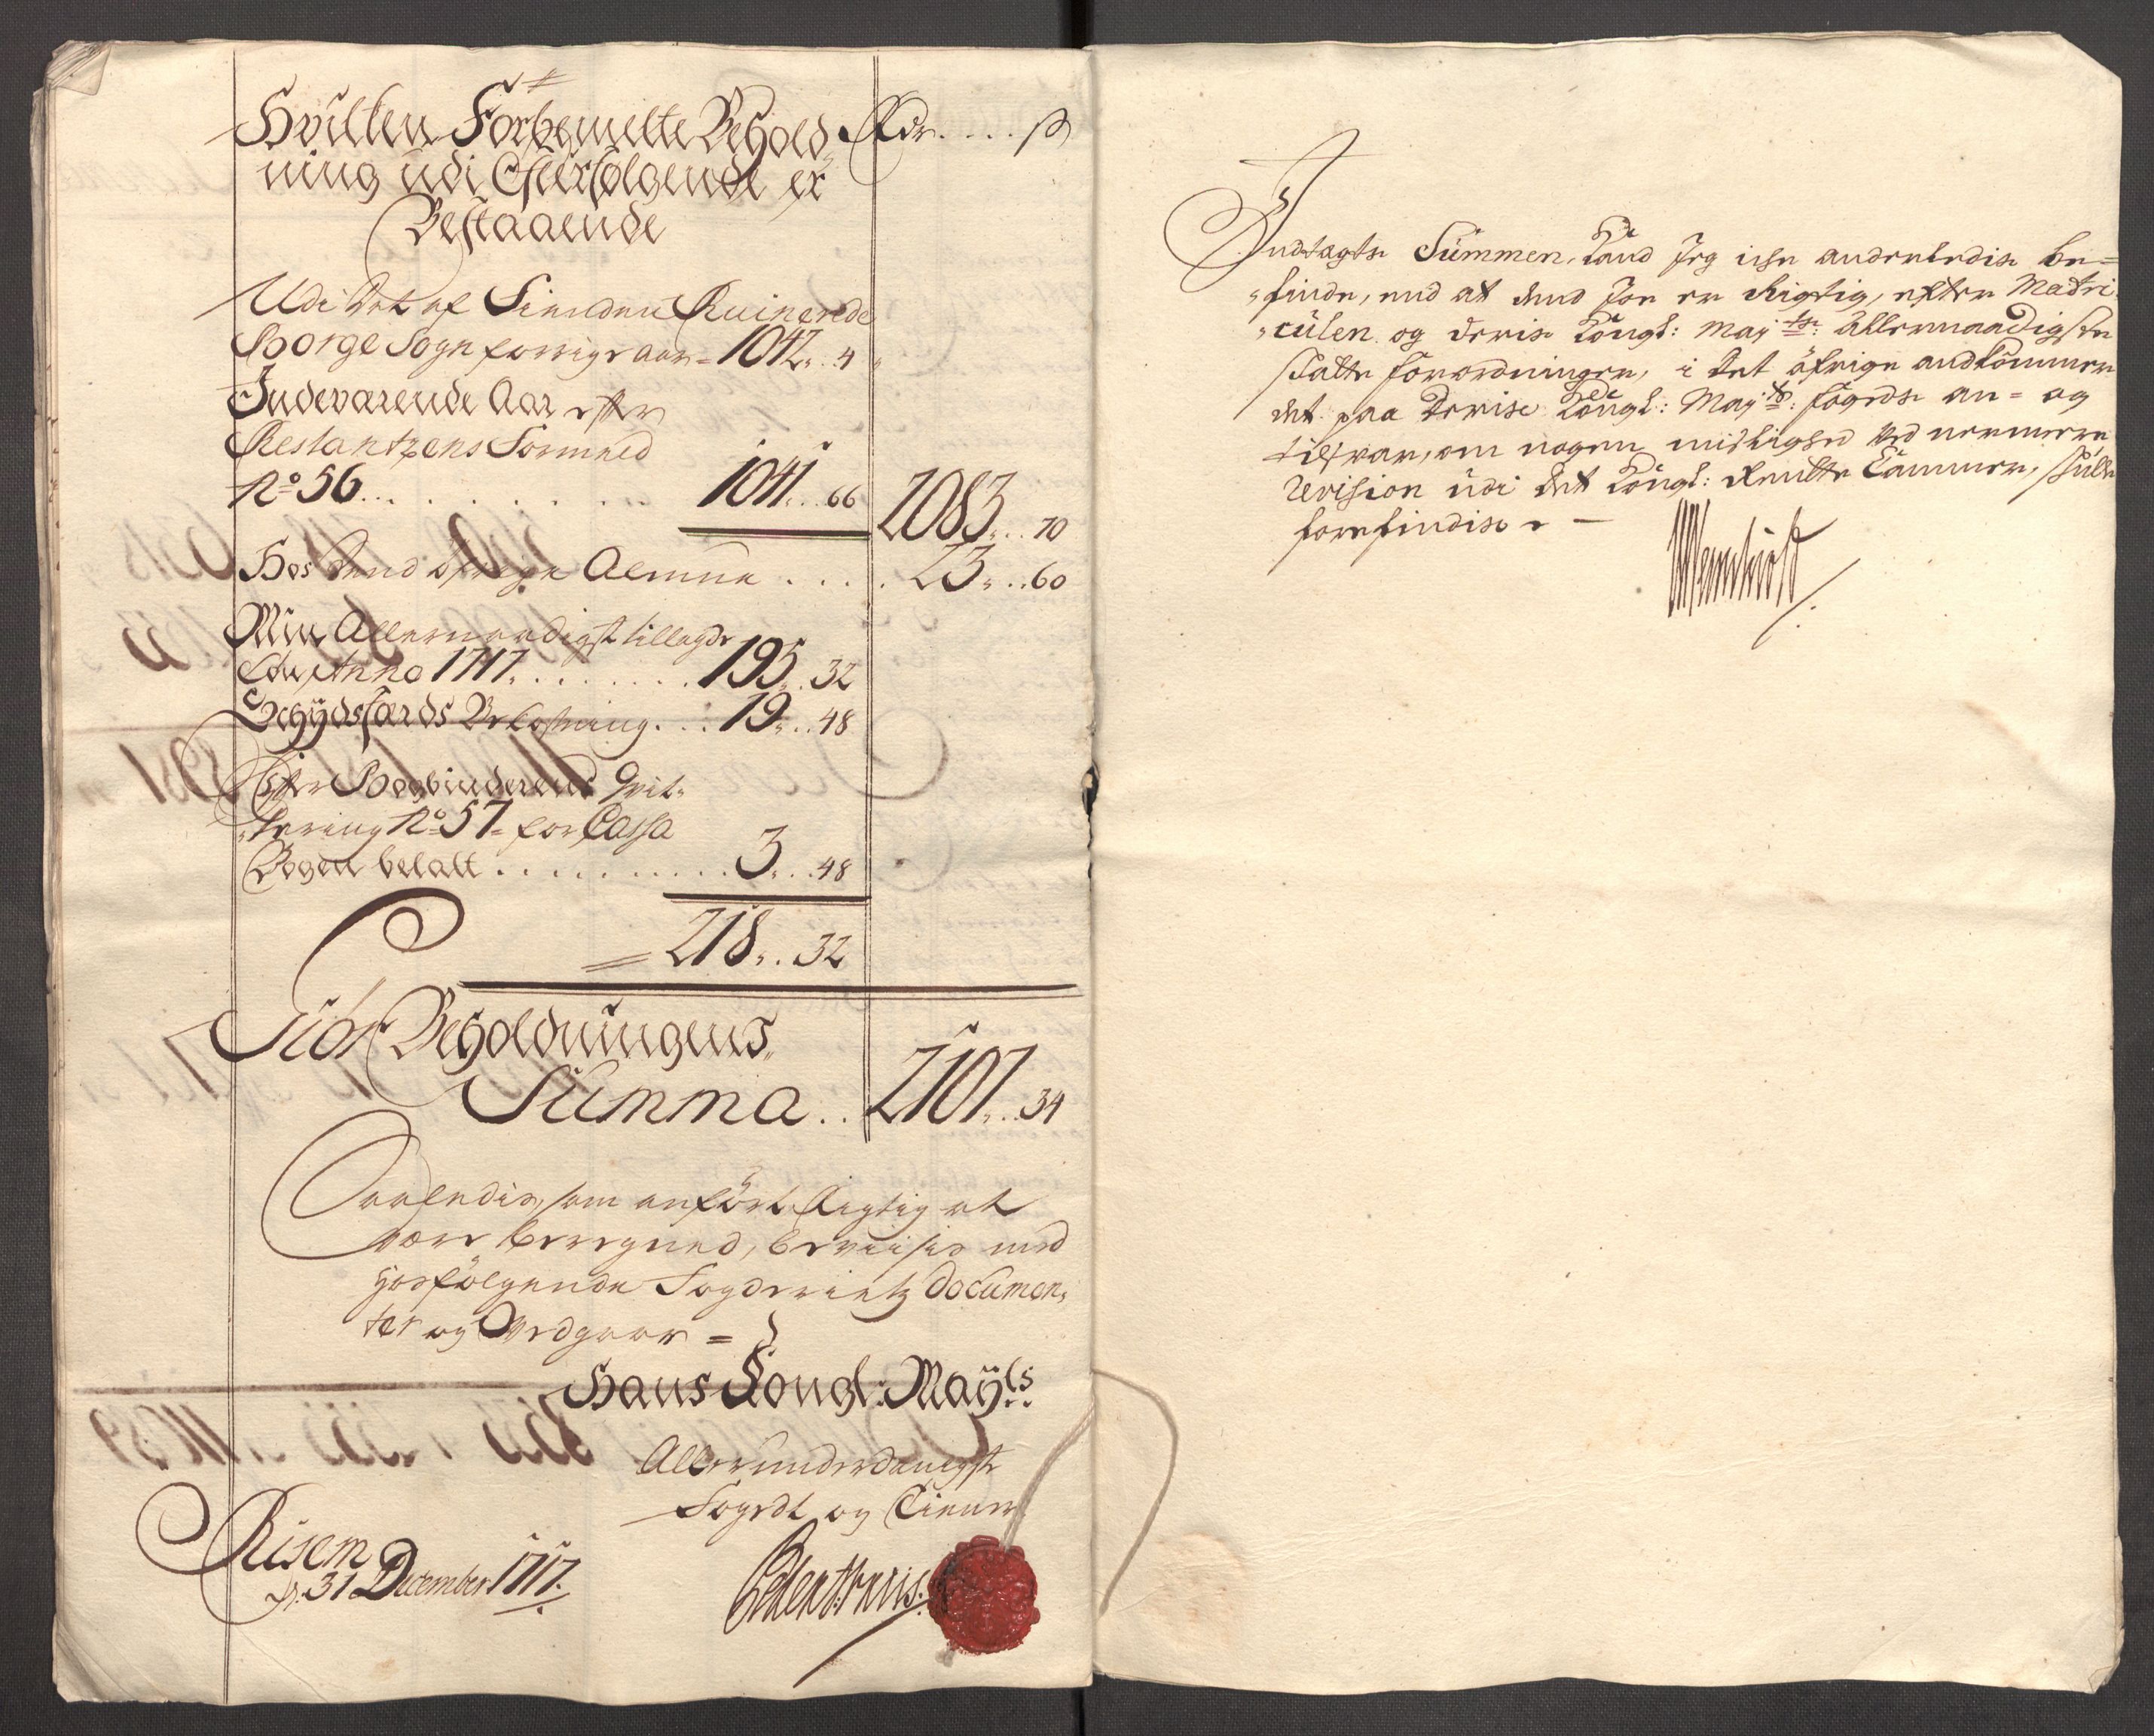 Hvilken Forbemelte Behold- Rdr.... ß
ning udi Efterfølgende er
Bestaaende
Udi Det af Fienden Ruinerede
Borge Sogn forrige aar = 1042...4
Indeværende Aar efter
Restantzens Formeld
No 56......... 1041...66 2083...70
Hos dend øfrige Almue..... 23...60
Min Allernaadigst tillagde
Løn Anno 1717........ 195..32
Schydsfærds Bekostning... 19...48
Efter Bogbinderens Qvit-
tering No 57 = for Cassa
Bogen betalt.......... 3...48
= 218...32
Giør Beholdningens
Summa.. 2107...34
Saaledis som anført Rigtig at
være beregned, beviises med
hosfølgende Fogderietz documen-
ter og Vedgaar =
Hans Kongl: Mayts:
Allerunderdanigste
Fogedt og Tiener
Risem
d. 31 December 1717.
Indtægts Summen, kand Jeg icke anderledis be=
finde, end at dend jo er Rigtig, efter Matri-
culen og Deris Kongl: Mayts: allernaadigste
skatte forordninger, i det øfrige andkommer
det paa Deris Kongl: Mayts: foged an = og
tilsvar, om nogen urigtighed ved nermere
revision udi det Kongl: Rente Cammer, skulle
forefindis. —